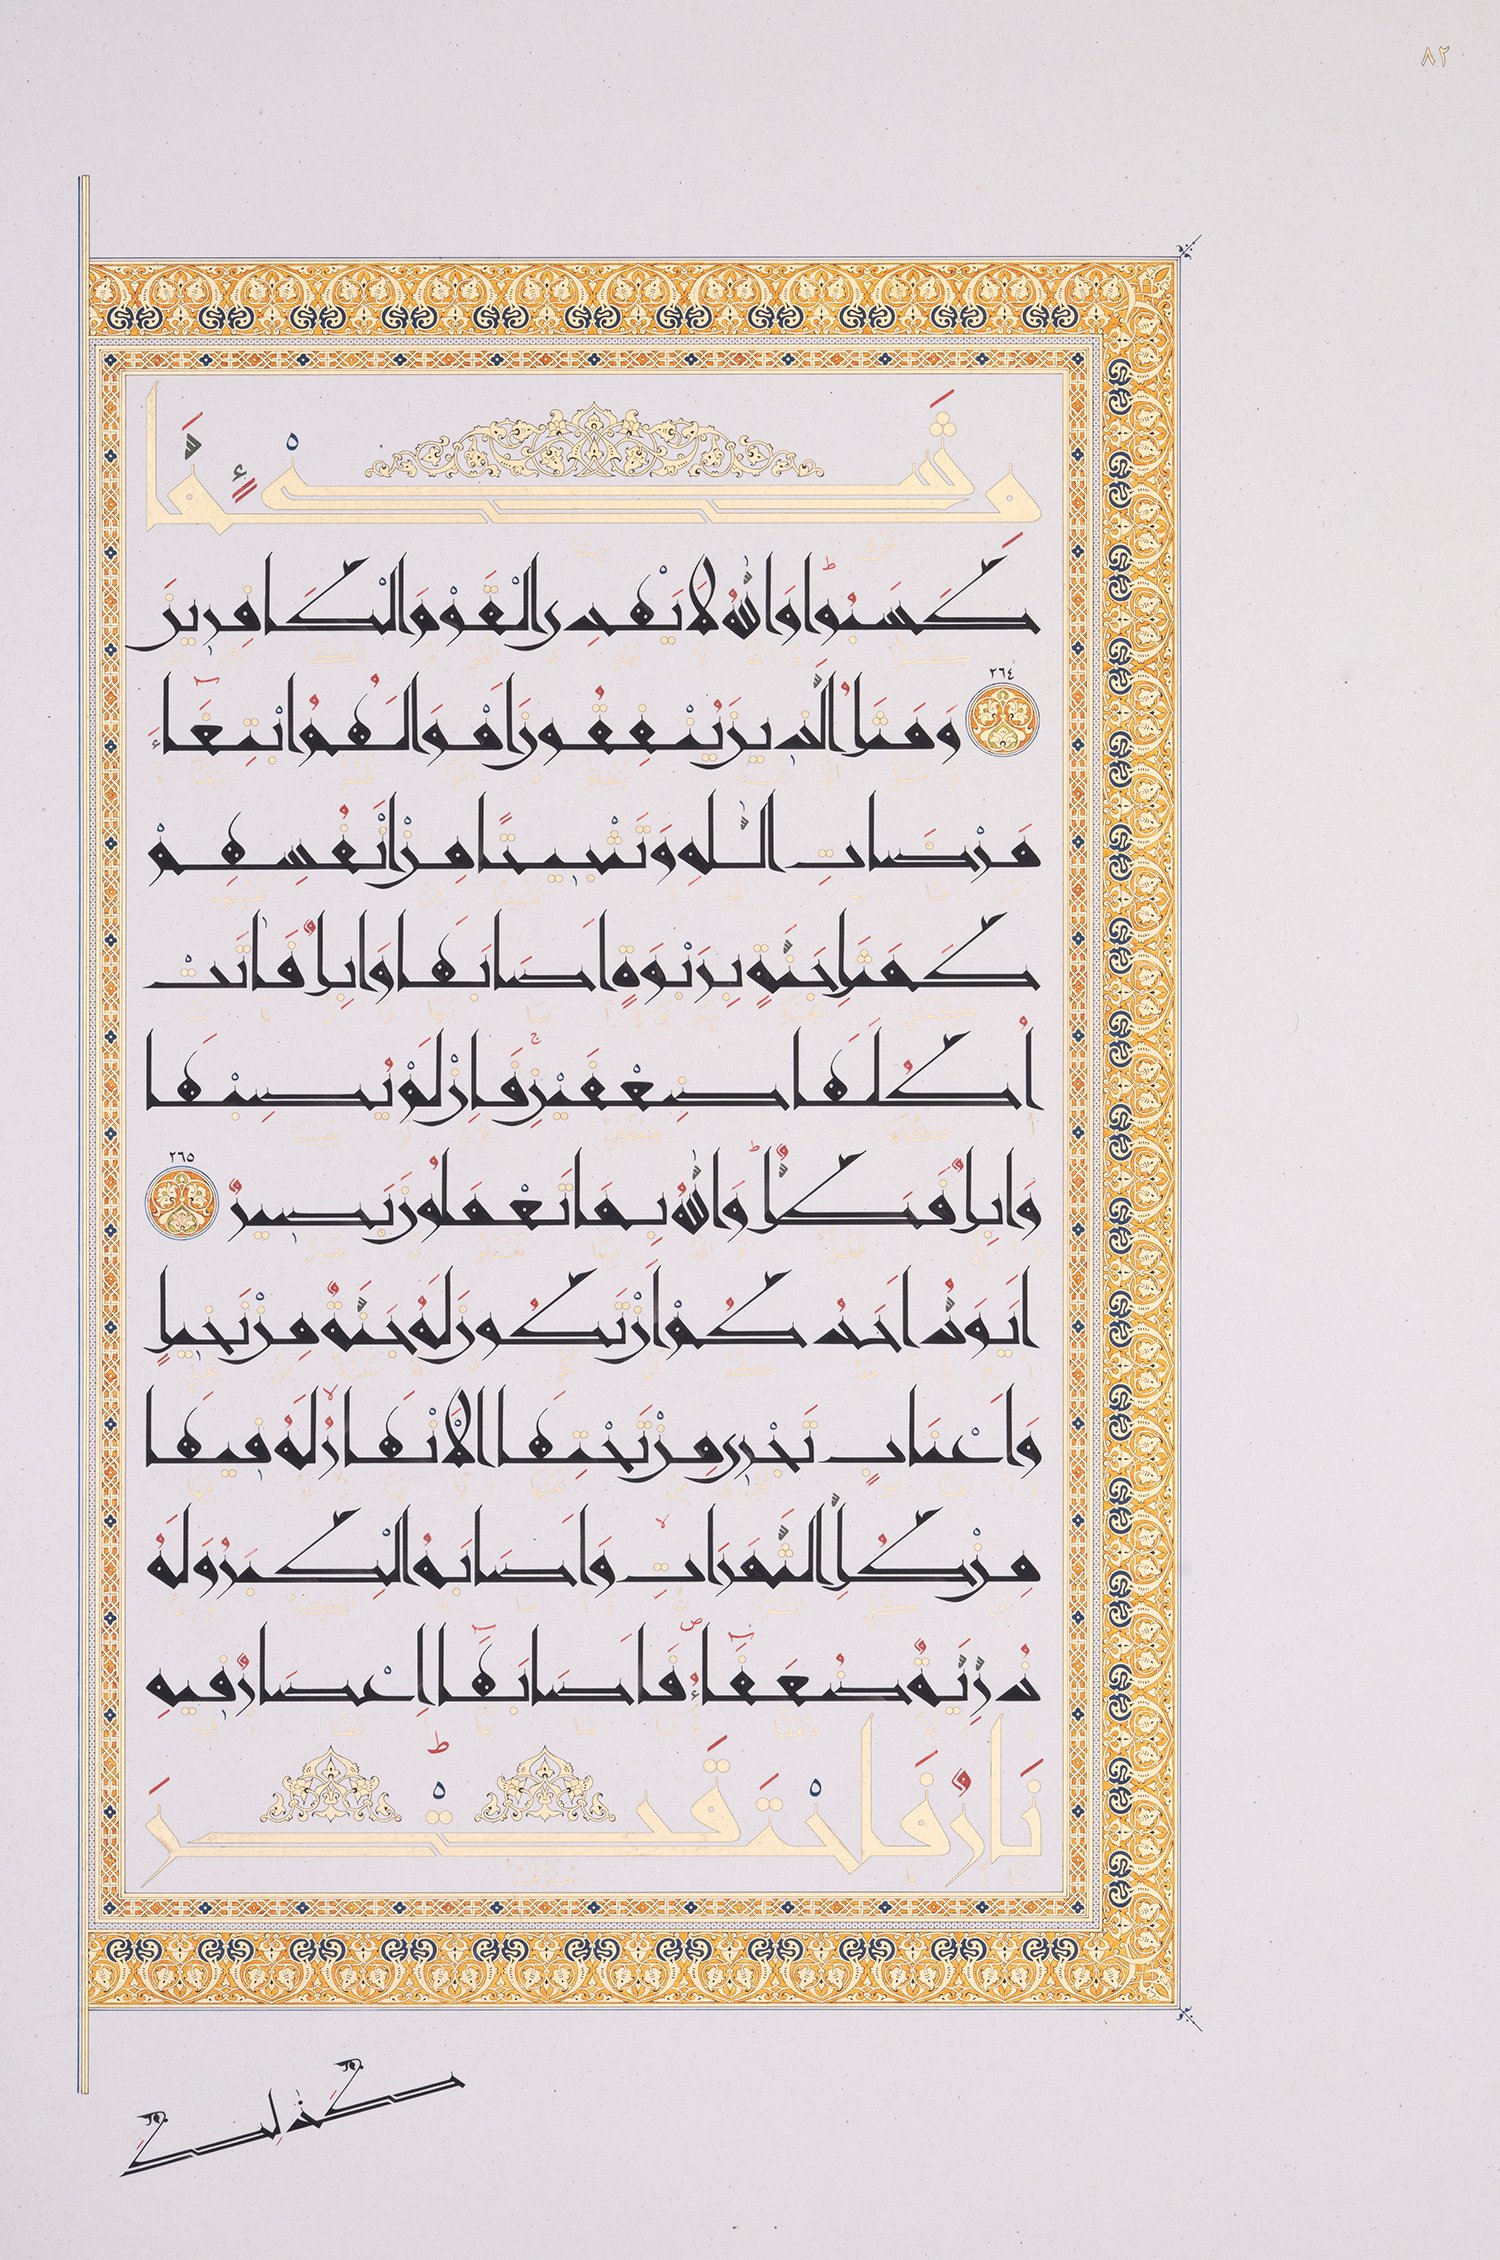 ٨٢
شَيْءٍ مِمَّا
كَسَبُوا وَاللَّهُ لَا يَهْدِي الْقَوْمَ الْكَافِرِينَ
٢٦٤ وَمَثَلُ الَّذِينَ يُنْفِقُونَ أَمْوَالَهُمُ ابْتِغَاءَ
مَرْضَاتِ اللَّهِ وَتَثْبِيتًا مِنْ أَنْفُسِهِمْ
كَمَثَلِ جَنَّةٍ بِرَبْوَةٍ أَصَابَهَا وَابِلٌ فَآتَتْ
أُكُلَهَا ضِعْفَيْنِ فَإِنْ لَمْ يُصِبْهَا
وَابِلٌ فَطَلٌّ وَاللَّهُ بِمَا تَعْمَلُونَ بَصِيرٌ ٢٦٥
أَيَوَدُّ أَحَدُكُمْ أَنْ تَكُونَ لَهُ جَنَّةٌ مِنْ نَخِيلٍ
وَأَعْنَابٍ تَجْرِي مِنْ تَحْتِهَا الْأَنْهَارُ لَهُ فِيهَا
مِنْ كُلِّ الثَّمَرَاتِ وَأَصَابَهُ الْكِبَرُ وَلَهُ
ذُرِّيَّةٌ ضُعَفَاءُ فَأَصَابَهَا إِعْصَارٌ فِيهِ
نَارٌ فَاحْتَرَقَتْ
كَذَلِكَ